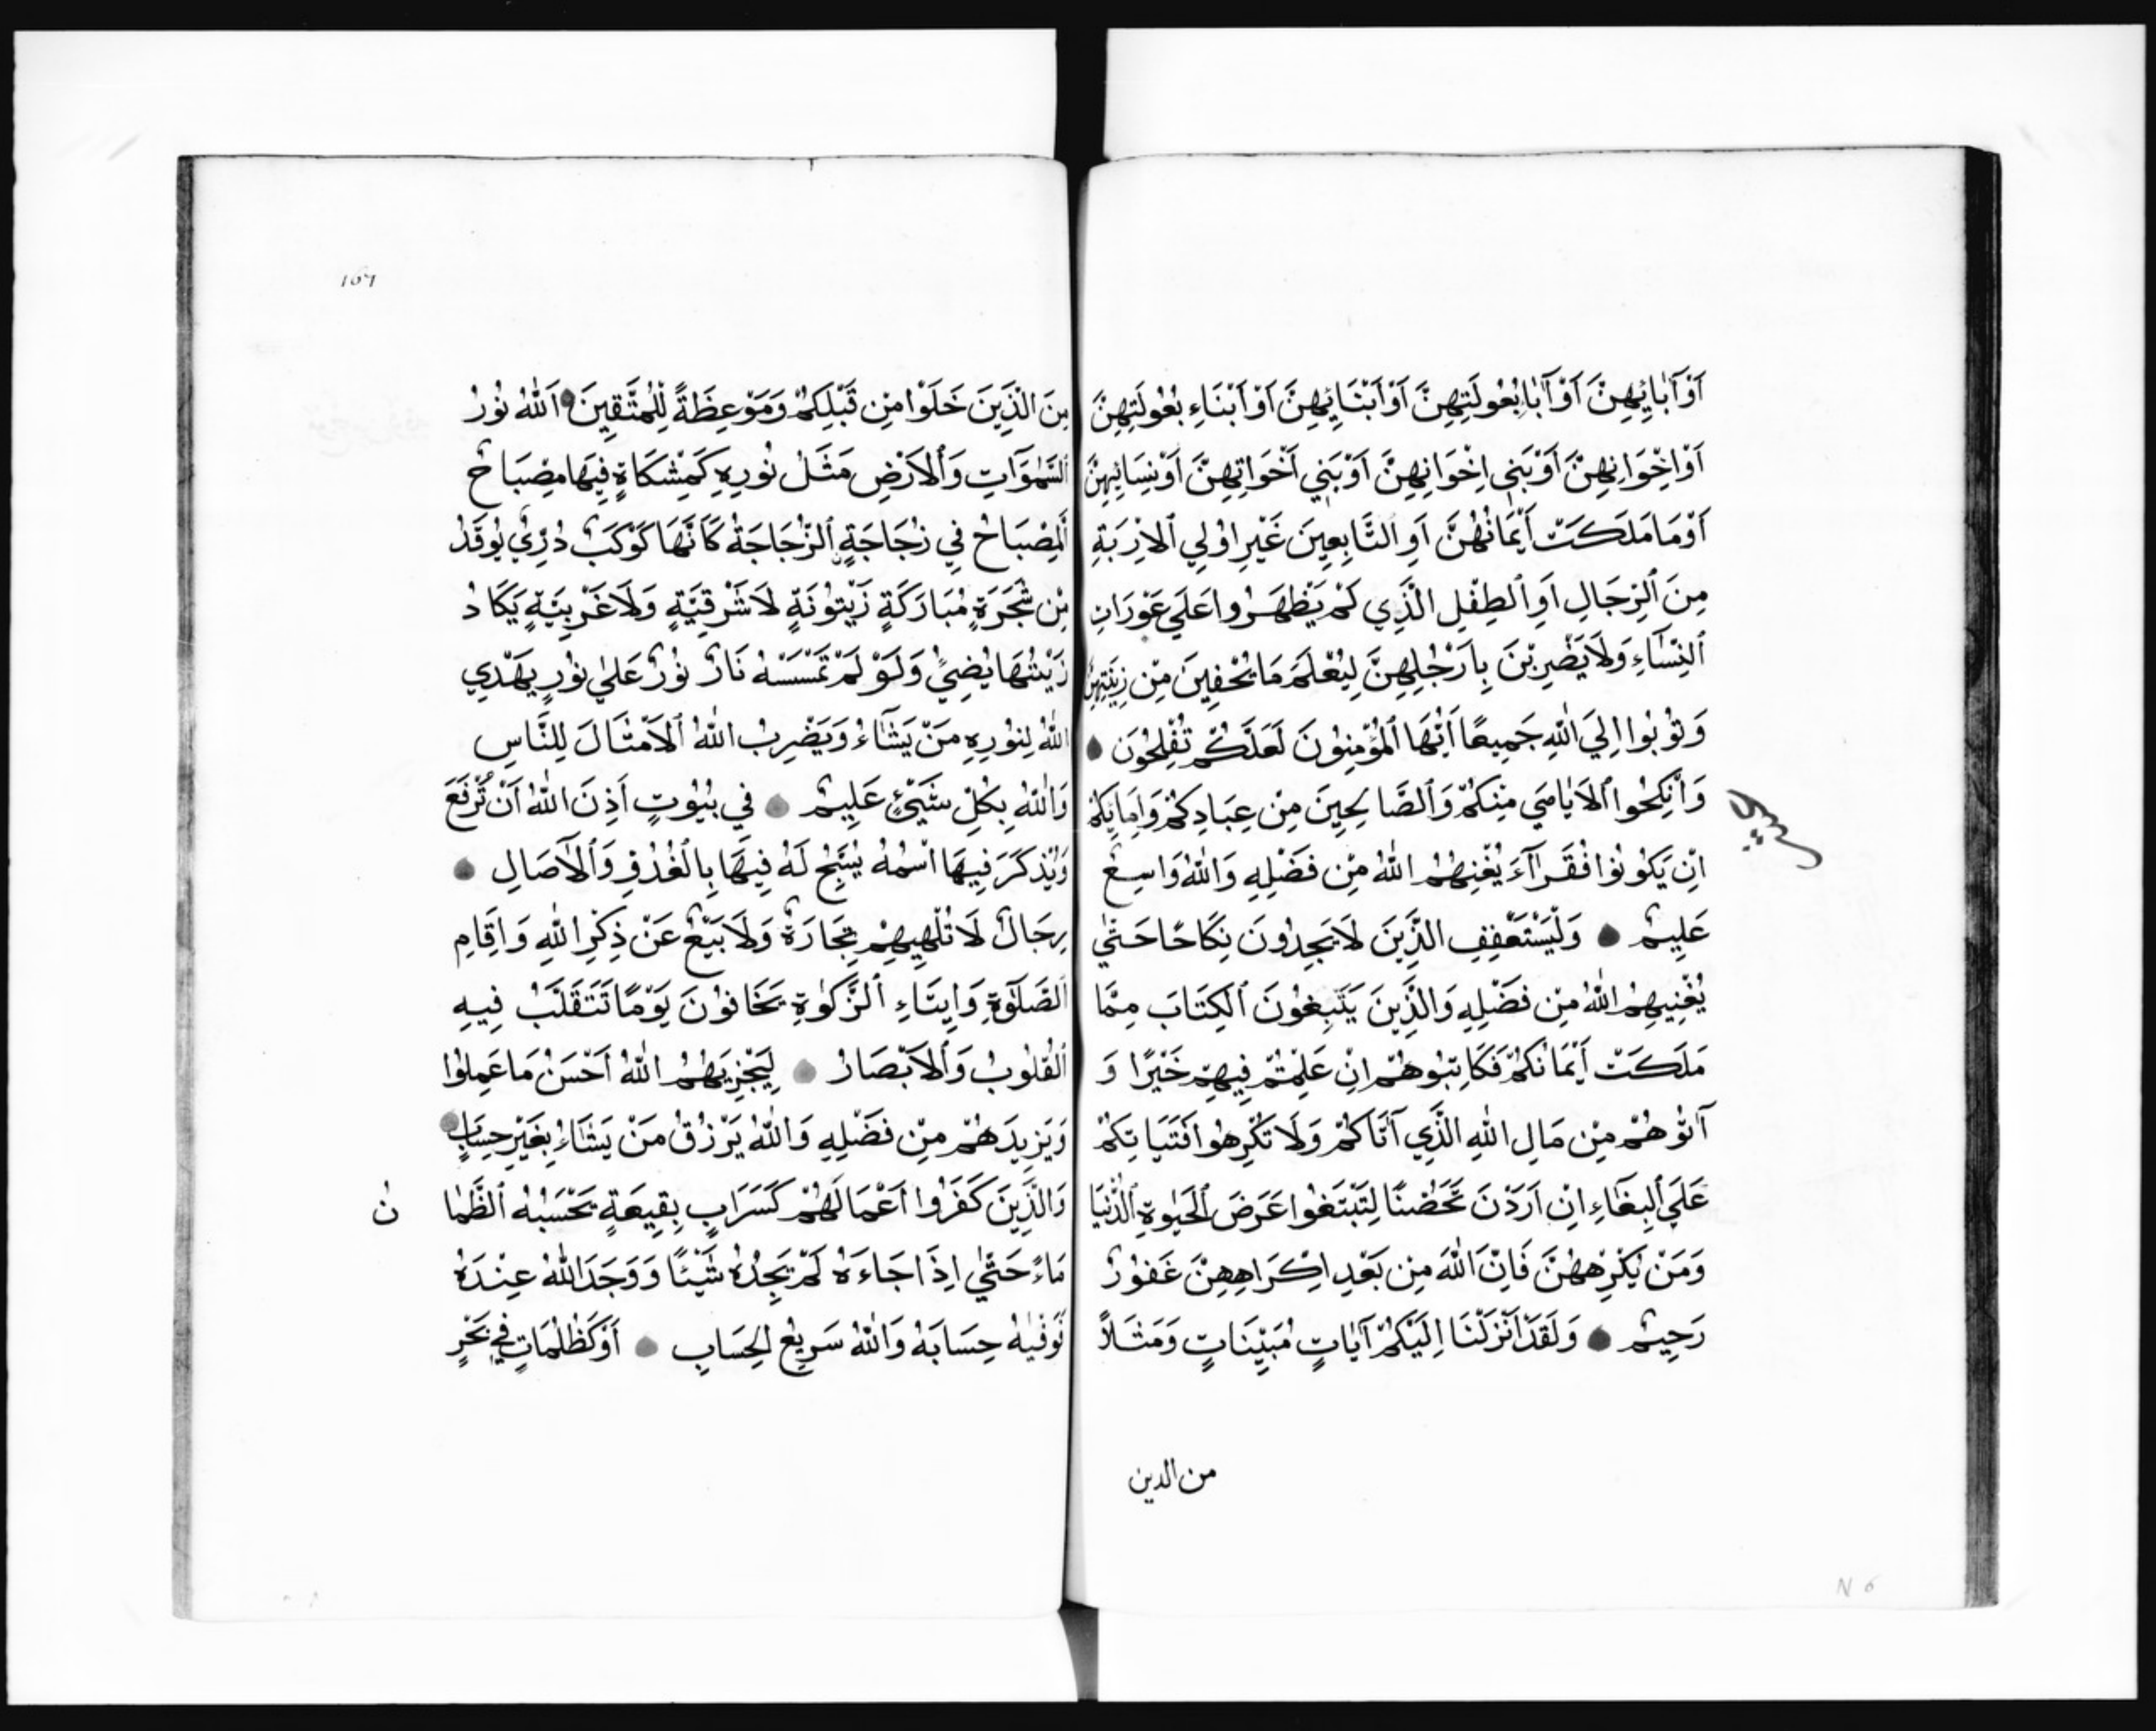 اَوْ آبَائِهِنَّ اَوْ آبَاۤءِ بُعُولَتِهِنَّ اَوْ اَبْنَائِهِنَّ اَوْ اَبْنَاءِ بُعُولَتِهِنَّ
اَوْ اِخْوَانِهِنَّ اَوْ بَنِي اِخْوَانِهِنَّ اَوْ بَنِي اَخَوَاتِهِنَّ اَوْ نِسَائِهِنَّ
اَوْ مَا مَلَكَتْ اَيْمَانُهُنَّ اَوِ التَّابِعِينَ غَيْرِ اوُلِي الاِرْبَةِ
مِنَ الرِّجَالِ اَوِ الطِّفْلِ الَّذِي لَمْ يَظْهَرُوا عَلَي عَوْرَاتِ
النِّسَاءِ وَلَا يَضْرِبْنَ بِاَرْجُلِهِنَّ لِيُعْلَمَ مَا يُخْفِينَ مِنْ زِينَتِهِنَّ
وَتُوبُوا اِلَيَ اللّٰهِ جَمِيعًا اَيُّهَا الْمُؤْمِنُونَ لَعَلَّكُمْ تُفْلِحُونَ
وَاَنْكِحُوا الاَيَامَي مِنْكُمْ وَالصَّالِحِينَ مِنْ عِبَادِكُمْ وَاِمَائِكُمْ
اِنْ يَكُونُوا فُقَرَآءَ يُغْنِهُمُ اللّٰهُ مِنْ فَضْلِهِ وَاللّٰهُ وَاسِعٌ
عَلِيمٌ وَلْيَسْتَعْفِفِ الَّذِينَ لَا يَجِدُونَ نِكَاحًا حَتّٰي
يُغْنِيهِمُ اللّٰهُ مِنْ فَضْلِهِ وَالَّذِينَ يَتَبِغُونَ الْكِتَابَ مِمَّا
مَلَكَتْ اَيْمَانُكُمْ فَكَاتِبُوهُمْ اِنْ عَلِمْتُمْ فِيهِمْ خَيْرًا وَ
آتُوهُمْ مِنْ مَالِ اللّٰهِ الَّذِي آتَاكُمْ وَلَا تُكْرِهُوا فَتَيَاتِكُمْ
عَلَي الْبِغَاءِ اِنْ اَرَدْنَ تَحَصُّنًا لِتَبْتَغُوا عَرَضَ الْحَيٰوةِ الدُّنْيَا
وَمَنْ يُكْرِهْهُنَّ فَاِنَّ اللّٰهَ مِنْ بَعْدِ اِكْرَاهِهِنَّ غَفُورٌ
رَحِيمٌ وَلَقَدْ اَنْزَلْنَا اِلَيْكُمْ آيَاتٍ مُبَيِّنَاتٍ وَمَثَلاً
من الدين
N 6
167
مِنَ الَّذِينَ خَلَوْا مِنْ قَبْلِكُمْ وَمَوْعِظَةً لِلْمُتَّقِينَ اَللّٰهُ نُورُ
السَّمٰوَاتِ وَالاَرْضِ مَثَلُ نُورِهِ كَمِشْكَاةٍ فِيهَا مِصْبَاحٌ
اَلْمِصْبَاحُ فِي زُجَاجَةٍ الزُّجَاجَةُ كَاَنَّهَا كَوْكَبٌ دُرِّيٌ يُوقَدُ
مِنْ شَجَرَةٍ مُبَارَكَةٍ زَيْتُونَةٍ لَا شَرْقِيَّةٍ وَلَا غَرْبِيَّةٍ يَكَادُ
زَيْتُهَا يُضِيُّ وَلَوْ لَمْ تَمْسَسْهُ نَارٌ نُورٌ عَلٰي نُورٍ يَهْدِي
اللّٰهُ لِنُورِهِ مَنْ يَشَاءُ وَيَضْرِبُ اللّٰهُ الاَمْثَالَ لِلنَّاسِ
وَاللّٰهُ بِكُلِّ شَيْءٍ عَلِيمٌ فِي بُيُوتٍ اَذِنَ اللّٰهُ اَنْ تُرْفَعَ
وَيُذْكَرَ فِيهَا اسْمُهُ يُسَبِّحُ لَهُ فِيهَا بِالْغُدُوِّ وَالْآصَالِ
رِجَالٌ لَا تُلْهِيهِمْ تِجَارَةٌ وَلَا بَيْعٌ عَنْ ذِكْرِ اللّٰهِ وَاِقَامِ
الصَّلٰوةِ وَاِيتَاءِ الزَّكٰوةِ يَخَافُونَ يَوْمًا تَتَقَلَّبُ فِيهِ
الْقُلُوبُ وَالاَبْصَارُ لِيَجْزِيَهُمُ اللّٰهُ اَحْسَنُ مَا عَمِلُوا
وَيَزِيدَهُمْ مِنْ فَضْلِهِ وَاللّٰهُ يَرْزُقُ مَنْ يَشَاءُ بِغَيْرِ حِسَابٍ
وَالَّذِينَ كَفَرُوا اَعْمَالُهُمْ كَسَرَابٍ بِقِيعَةٍ يَحْسَبُهُ الظَّمَا نُ
مَاءً حَتّٰي اِذَا جَاءَهُ لَمْ يَجِدْهُ شَيْئًا وَوَجَدَ اللّٰهُ عِنْدَهُ
فَوَفّٰيهُ حِسَابَهُ وَاللّٰهُ سَرِيعُ الْحِسَابِ اَوْ كَظُلُمَاتٍ فِي بَحْرٍ